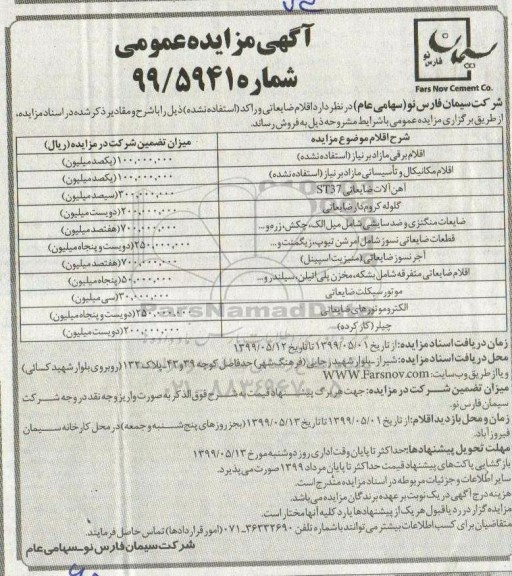 آگهی مزایده عمومی
شماره ۹۹/۵۹۴۱
سیمان
فارس نو
Fars Nov Cement Co.
شرکت سیمان فارس نو (سهامی عام) در نظر دارد اقلام ضایعاتی و راکد (استفاده نشده) ذیل را با شرح و مقادیر ذکر شده در اسناد مزایده،
از طریق برگزاری مزایده عمومی با شرایط مشروحه ذیل به فروش رساند.
شرح اقلام موضوع مزایده میزان تضمین شرکت در مزایده (ریال)
اقلام برقی مازاد بر نیاز (استفاده نشده) ۱۰۰,۰۰۰,۰۰۰ (یکصد میلیون)
اقلام مکانیکال و تأسیساتی مازاد بر نیاز (استفاده نشده) ۱۰۰,۰۰۰,۰۰۰ (یکصد میلیون)
آهن آلات ضایعاتی ST37 ۳۰۰,۰۰۰,۰۰۰ (سیصد میلیون)
گلوله کروم دار ضایعاتی ۲۰۰,۰۰۰,۰۰۰ (دویست میلیون)
ضایعات منگنزی و ضد سایشی شامل میل الک، چکش، زره و... ۷۰۰,۰۰۰,۰۰۰ (هفتصد میلیون)
قطعات ضایعاتی نسوز شامل آمرشن تیوپ، زیگمنت و... ۲۵۰,۰۰۰,۰۰۰ (دویست و پنجاه میلیون)
آجر نسوز ضایعاتی (منیزیت اسپینل) ۷۰۰,۰۰۰,۰۰۰ (هفتصد میلیون)
اقلام ضایعاتی متفرقه شامل بشکه، مخزن پلی اتیلن، سیلندر و... ۵۰,۰۰۰,۰۰۰ (پنجاه میلیون)
موتور سیکلت ضایعاتی ۳۰,۰۰۰,۰۰۰ (سی میلیون)
الکتروموتورهای ضایعاتی ۲۵۰,۰۰۰,۰۰۰ (دویست و پنجاه میلیون)
چیلر (کارکرده) ۲۰۰,۰۰۰,۰۰۰ (دویست میلیون)
زمان دریافت اسناد مزایده: از تاریخ ۱۳۹۹/۰۵/۰۱ تا تاریخ ۱۳۹۹/۰۵/۱۲
محل دریافت اسناد مزایده: شیراز- بلوار شهید رجایی (فرهنگ شهر) حد فاصل کوچه ۳۹ و ۴۳- پلاک ۱۳۲ (روبروی بلوار شهید کسائی)
و یا از طریق وب سایت: WWW.Farsnov.com
میزان تضمین شرکت در مزایده: جهت هر برگ پیشنهاد قیمت به شرح فوق الذکر به صورت واریز وجه نقد در وجه شرکت
سیمان فارس نو.
زمان و محل بازدید اقلام: از تاریخ ۱۳۹۹/۰۵/۰۱ تا تاریخ ۱۳۹۹/۰۵/۱۳ (بجز روزهای پنج شنبه و جمعه) در محل کارخانه سیمان
فیروزآباد.
مهلت تحویل پیشنهادها: حداکثر تا پایان وقت اداری روز دوشنبه مورخ ۱۳۹۹/۰۵/۱۳
بازگشایی پاکت های پیشنهاد قیمت حداکثر تا پایان مرداد ۱۳۹۹ صورت می پذیرد.
سایر اطلاعات و جزئیات مربوطه در اسناد مزایده مندرج است.
هزینه درج آگهی در یک نوبت بر عهده برندگان مزایده می باشد.
مزایده گزار در رد یا قبول هر یک از پیشنهادها یا رد کلیه آنها مختار است.
متقاضیان برای کسب اطلاعات بیشتر می توانند با شماره تلفن ۳۶۳۳۲۶۹۰-۰۷۱ (امور قراردادها) تماس حاصل فرمایند.
شرکت سیمان فارس نو-سهامی عام